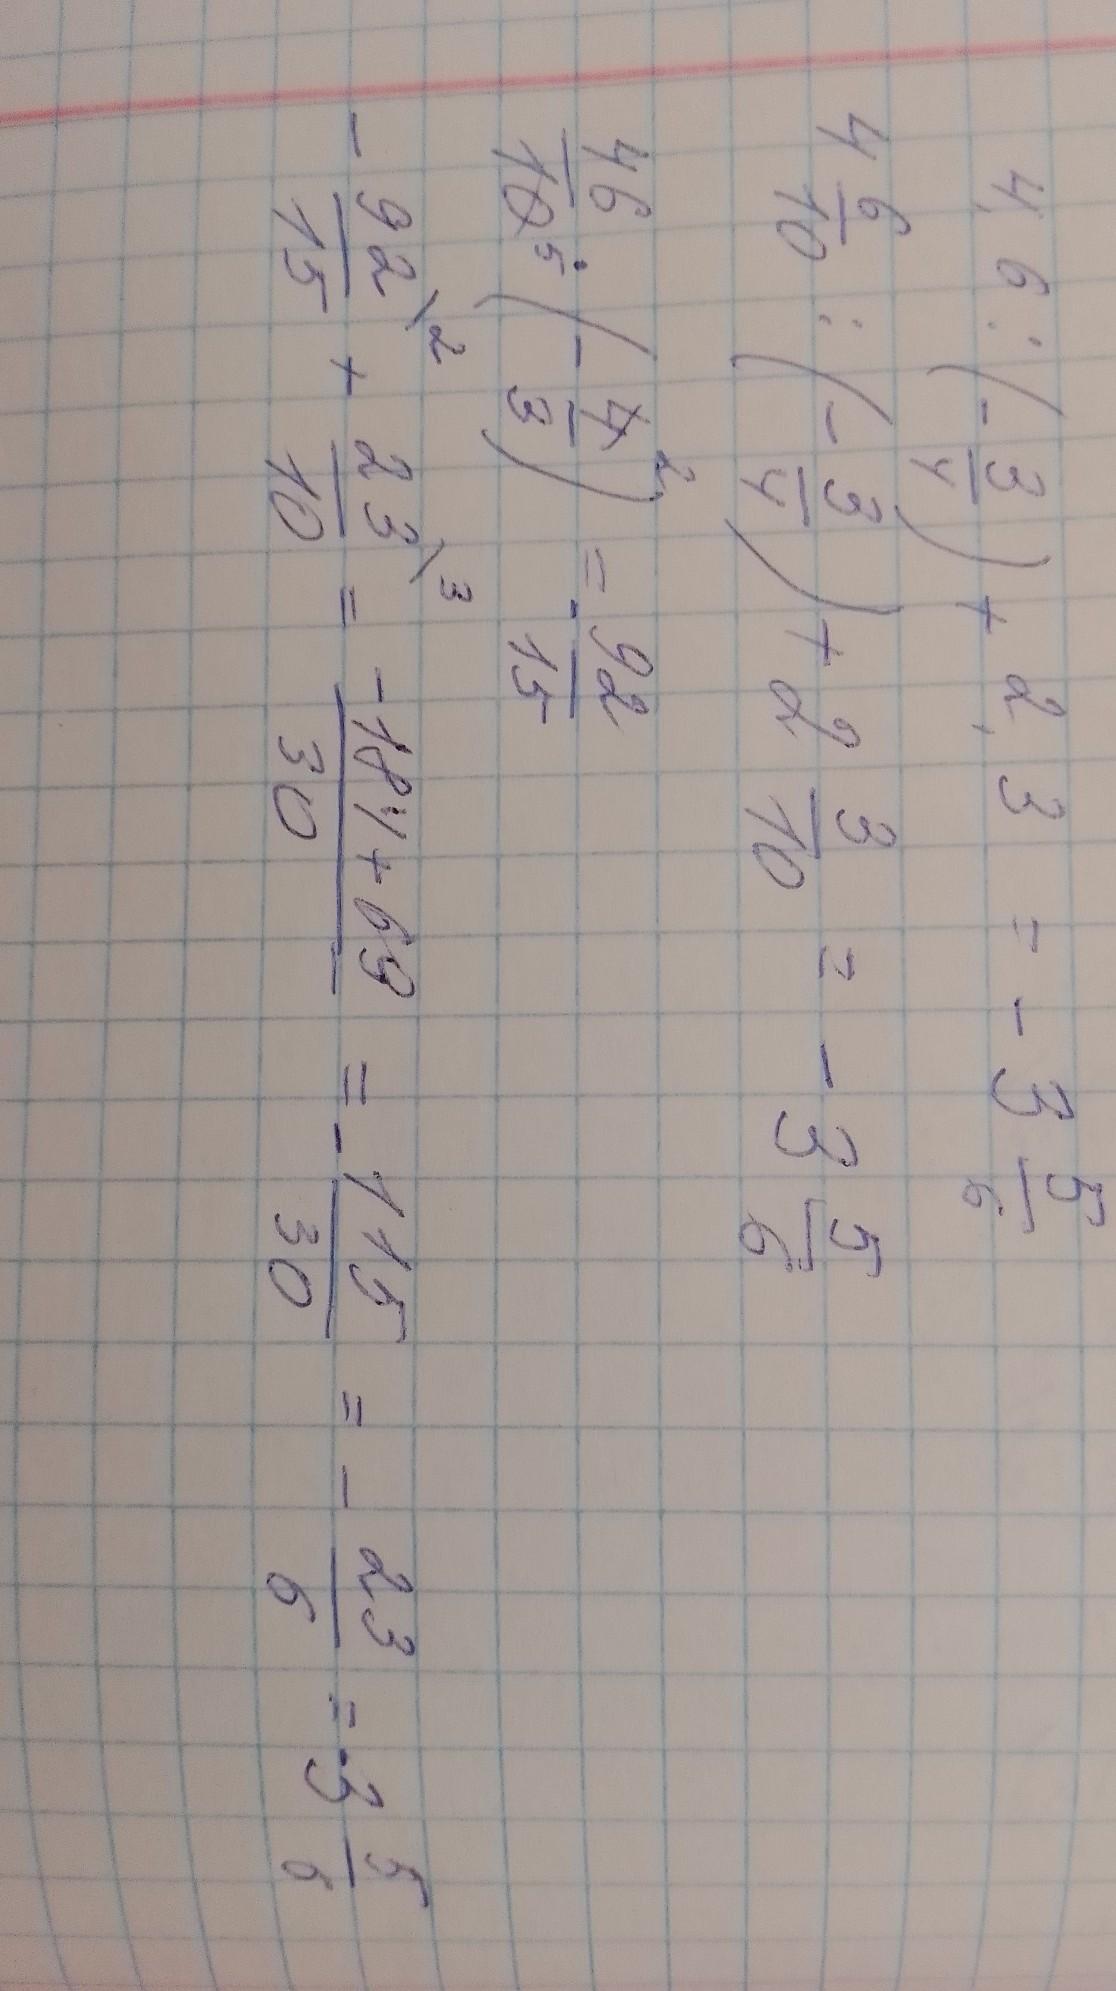 4,6 : (-3/4) + 2,3 = -3 5/6
4 6/10 : (-3/4) + 2 3/10 = -3 5/6
46/10⁵ · (-4²/3) = -92/15
-92\²/15 + 23\³/10 = -184+69/30 = -115/30 = -23/6 = -3 5/6